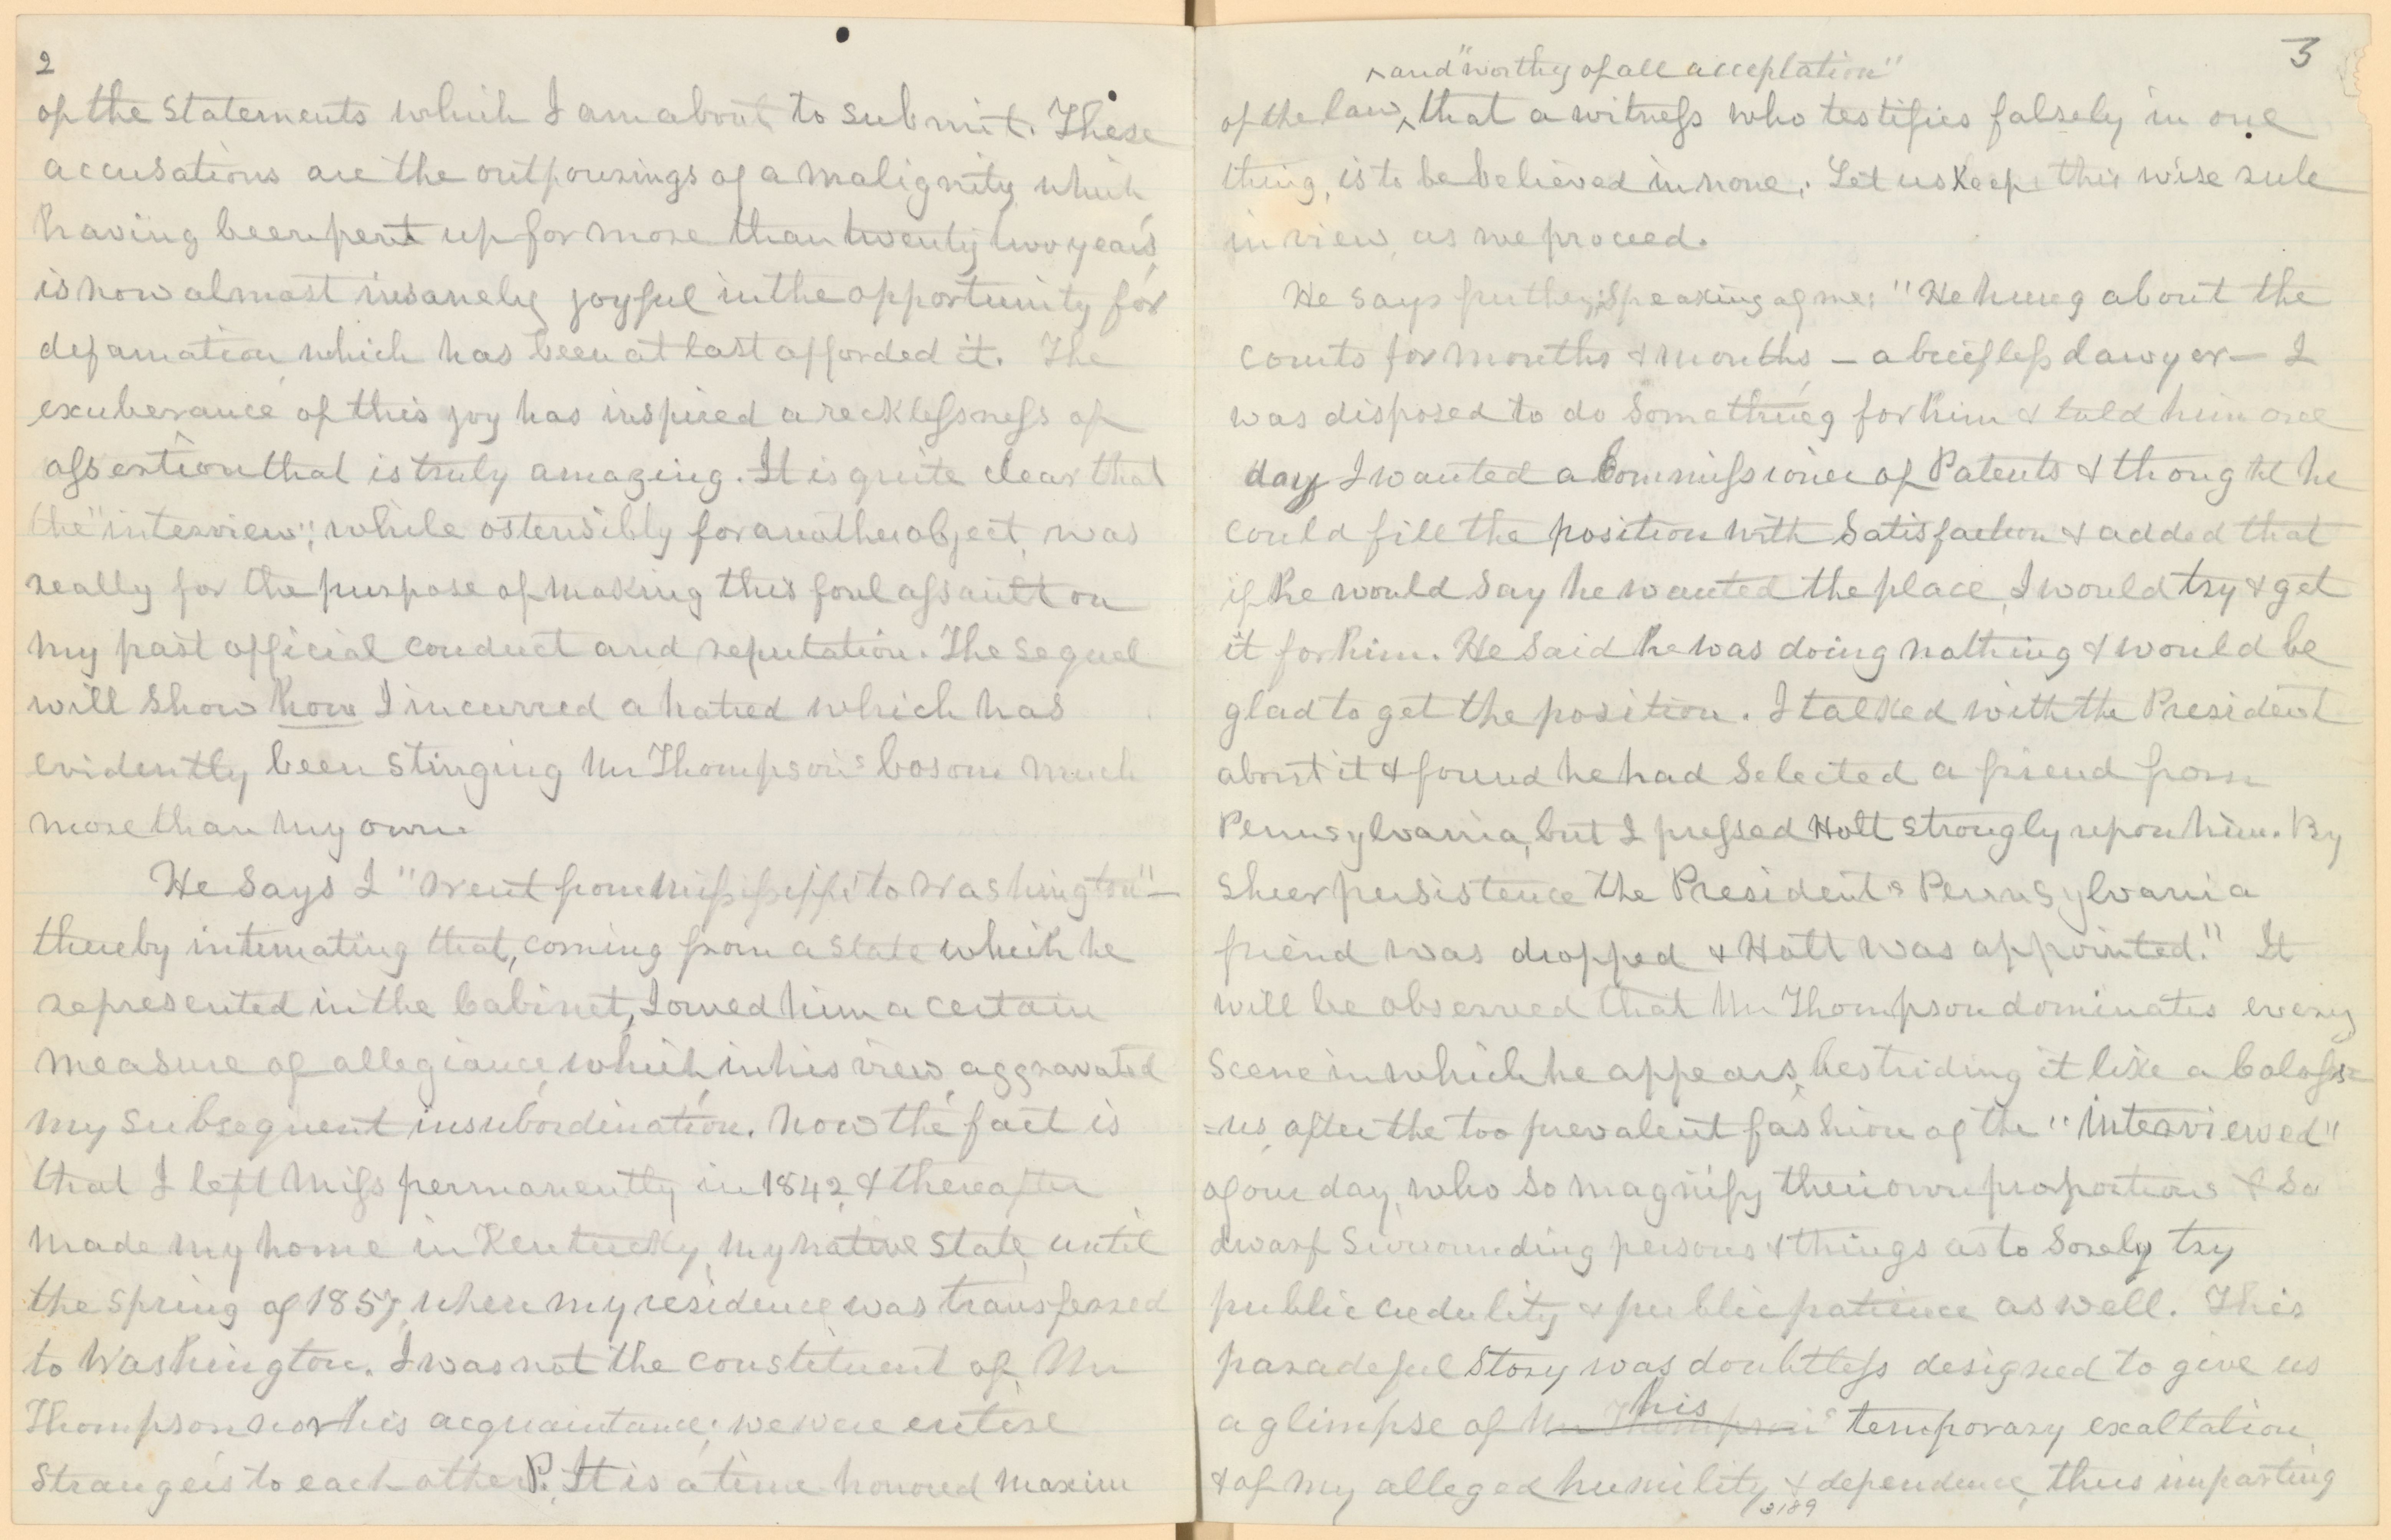 2
of the statements which I am about to submit. These
accusations are the outpourings of a malignity which
having been pent up for more than twenty two years,
is now almost insanely joyful in the opportunity for
defamation which has been at last afforded it. The
exuberance of this joy has inspired a recklessness of
assertion that is truly amazing. It is quite clear that
the "interview", while ostensibly for another object, was
really for the purpose of making this foul assault on
my past official conduct and reputation. The sequel
will show how I incurred a hatred which has
evidently been stinging Mr Thompson's bosom much
more than my own.
He says I "went from Mississippi to Washington" —
thereby intimating that, coming from a state which he
represented in the Cabinet, I owed him a certain
measure of allegiance, which in his view, aggravated
my subsequent insubordination. Now the fact is
that I left Miss permanently in 1842, & thereafter
made my home in Kentucky, my native State, until
the spring of 1857, when my residence was transferred
to Washington. I was not the constituent of Mr
Thompson nor his acquaintance; we were entire
strangers to each other. P. It is a time honored maxim
3
^ and "worthy of all acceptation"
of the law, ^ that a witness who testifies falsely in one
thing, is to be believed in none. Let us keep this wise rule
in view, as we proceed.
He says further, speaking of me: "He hung about the
courts for months & months — a briefless lawyer — I
was disposed to do something for him & told him one
day I wanted a Commissioner of Patents & thought he
could fill the position with satisfaction & added that
if he would say he wanted the place, I would try & get
it for him. He said he was doing nothing & would be
glad to get the position. I talked with the President
about it & found he had selected a friend from
Pennsylvania, but I pressed Holt strongly upon him. By
sheer persistence the President's Pennsylvania
friend was dropped & Holt was appointed." It
will be observed that Mr Thompson dominates every
scene in which he appears, bestriding it like a Coloss=
=us, after the too prevalent fashion of the "interviewed"
of our day, who so magnify their own proportions & so
dwarf surrounding persons & things as to sorely try
public credulity & public patience as well. This
paradeful story was doubtless designed to give us
his
a glimpse of Mr Thompson's temporary exaltation,
& of my alleged humility & dependence, thus imparting
3189